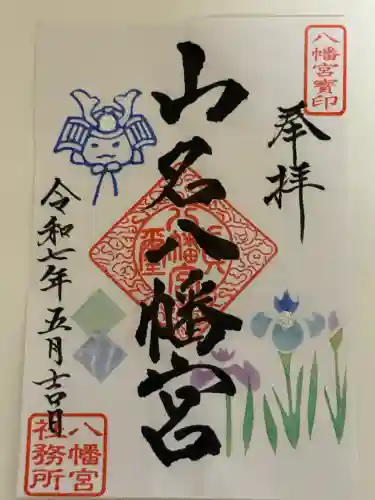 八幡宮寶印
奉拝
山名八幡宮
令和七年五月吉日
八幡宮
社務所